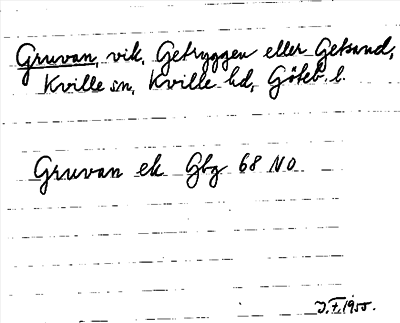 Gruvan, vik, Getryggen eller Getsund,
Kville sn, Kville hd, Göteb. l.
Gruvan ek Gbg 68 NO
J.F. 1955.